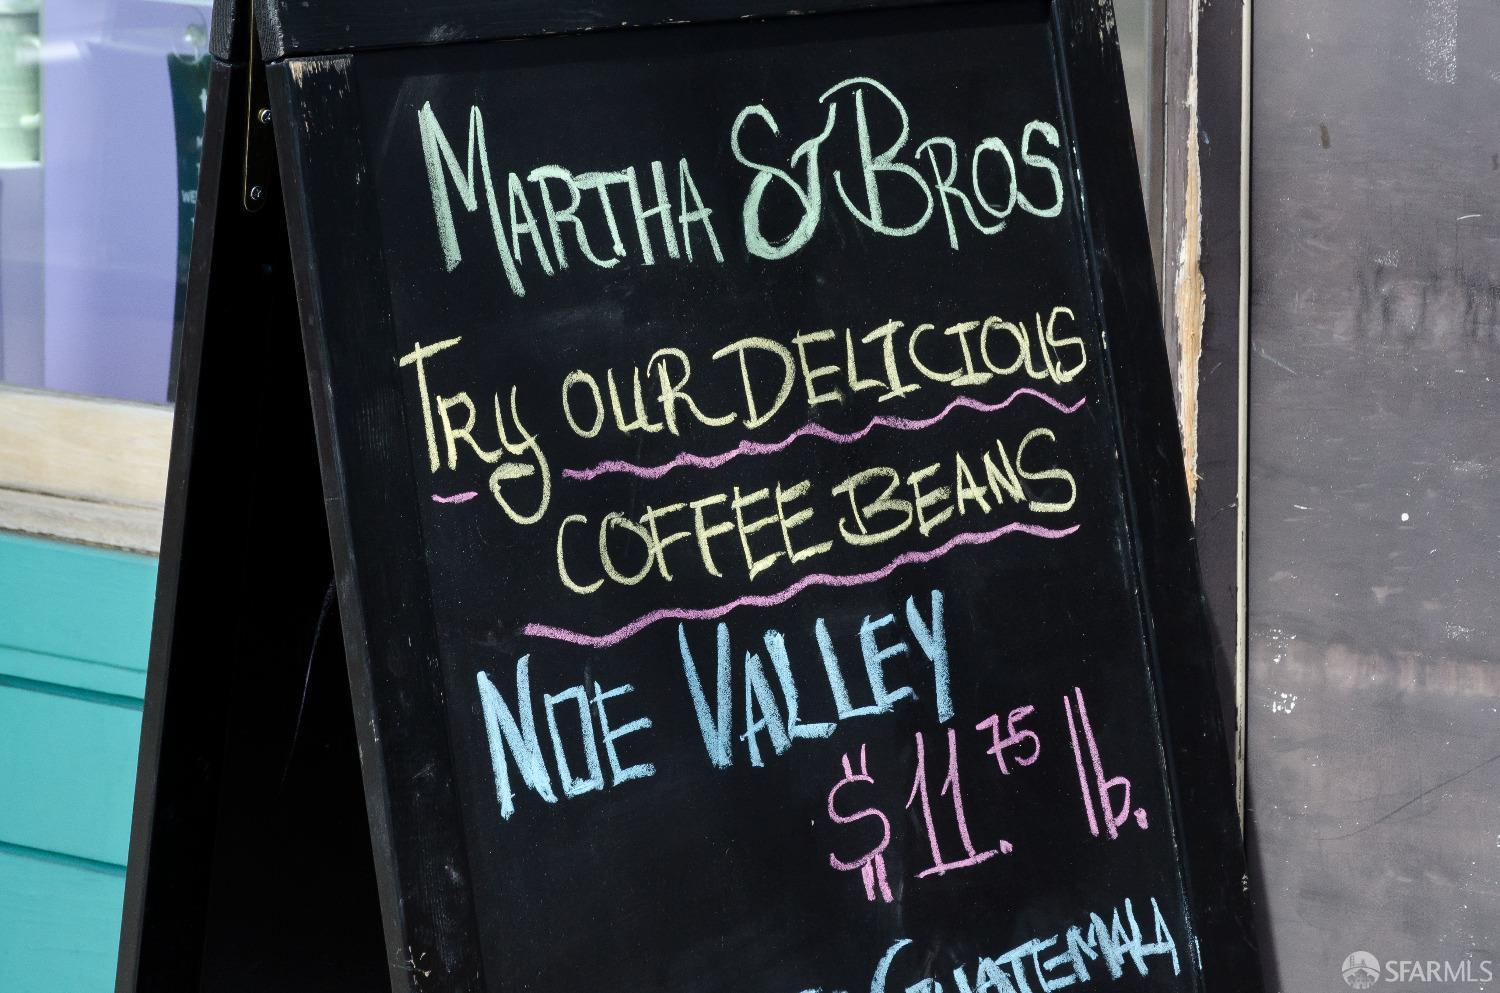 MARTHA & BROS
TRY OUR DELICIOUS
COFFEE BEANS
NOE VALLEY
$11.75 lb.
GUATEMALA
SFARMLS